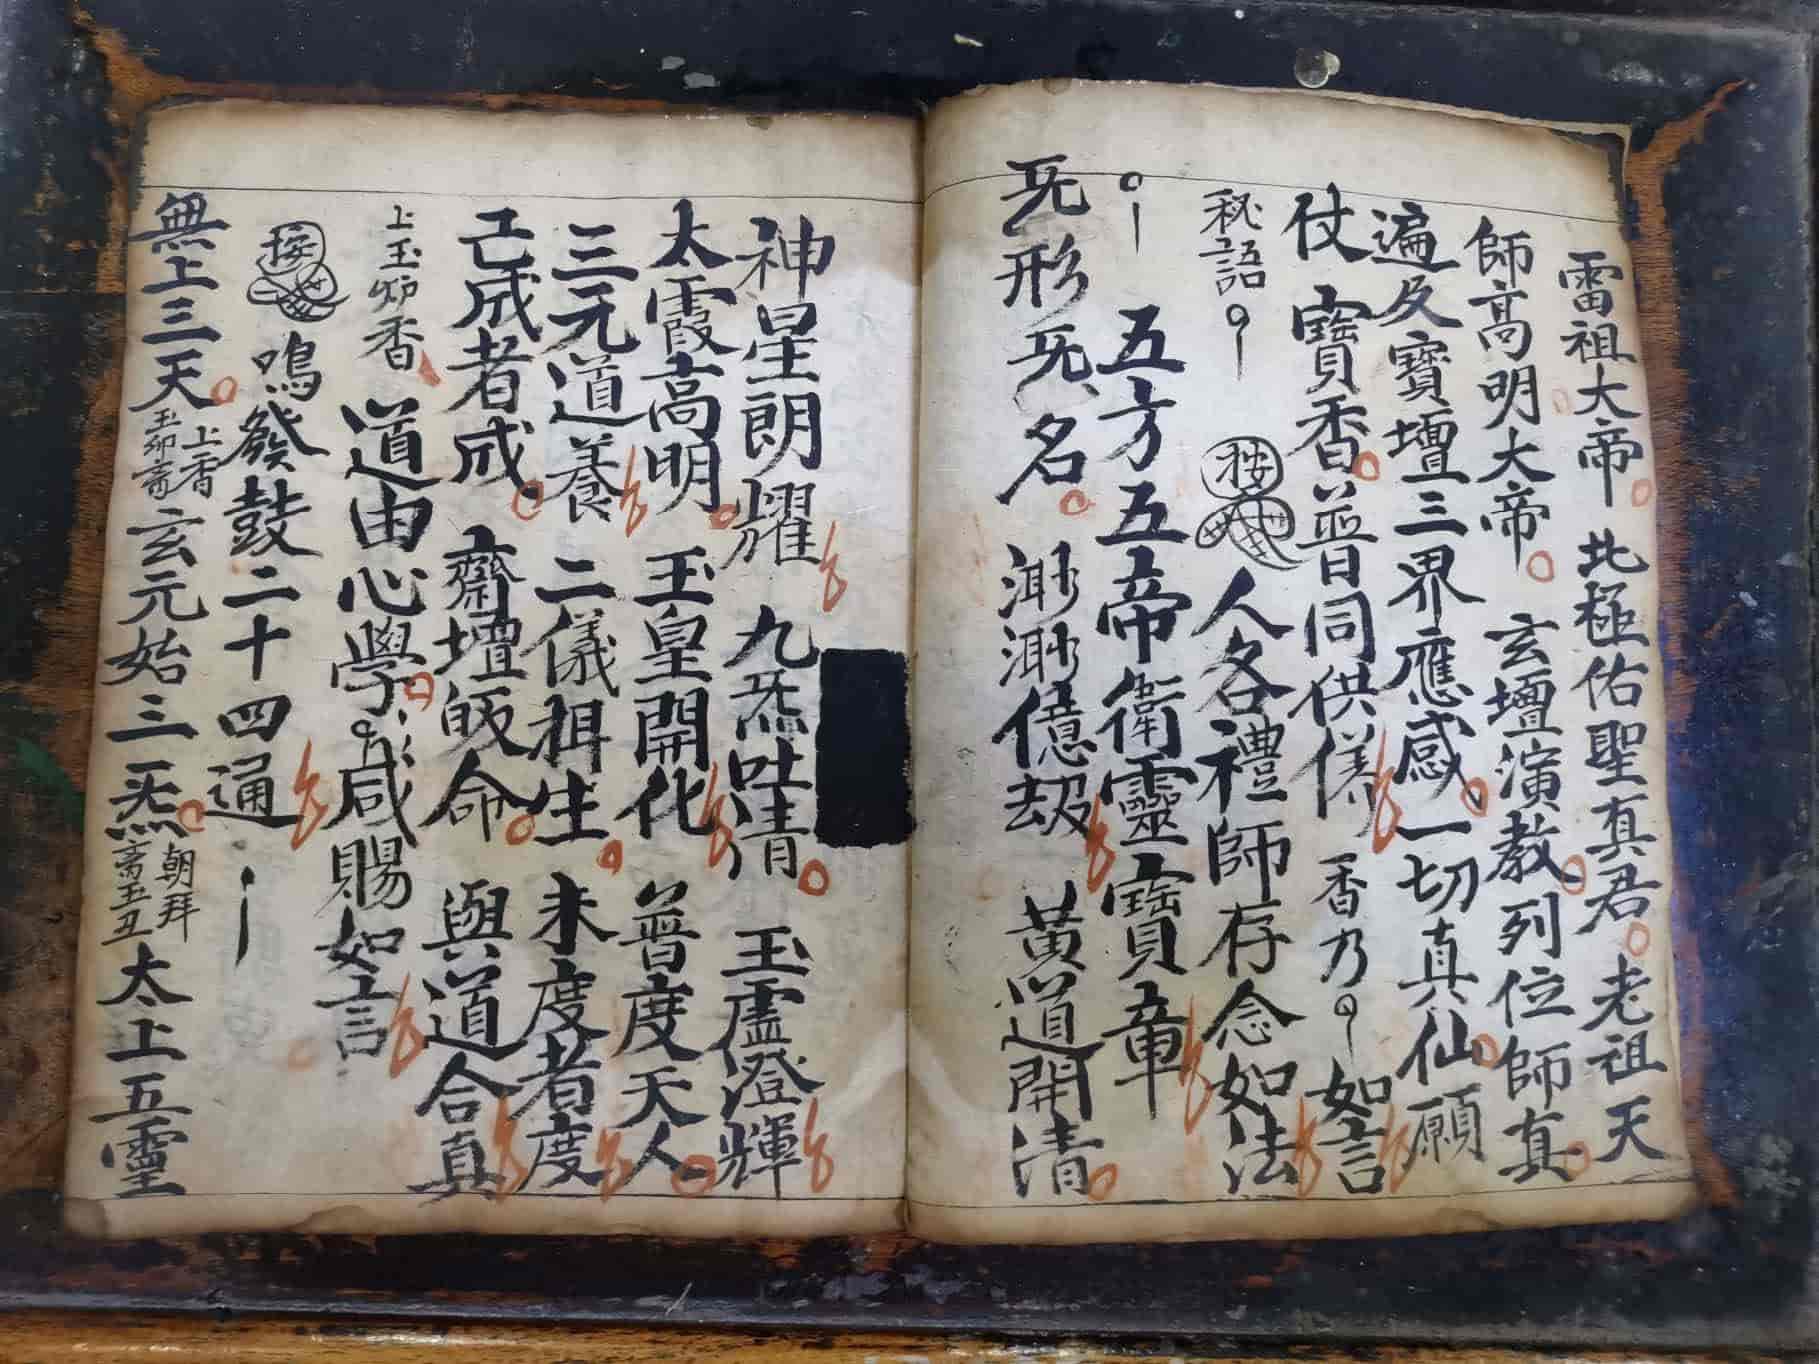 雷祖大帝北極佑聖真君老祖天
師高明大帝玄壇演教列位師真
遍及寶壇三界應感一切真仙願
仗寶香普同供養香乃如言
秘語
按人各禮師存念如法
五方五帝衛靈寶章
旡形旡名渺渺億劫黃道開清
神星朗耀九炁吐清玉虛澄輝
太霞高明玉皇開化普度天人
三元道養二儀相生未度者度
已成者成齋壇皈命與道合真
上玉卯香道由心學咸賜如言
按鳴發鼓二十四通
無上三天上香玉卯齋玄元始三炁朝拜齋玉丑太上五靈